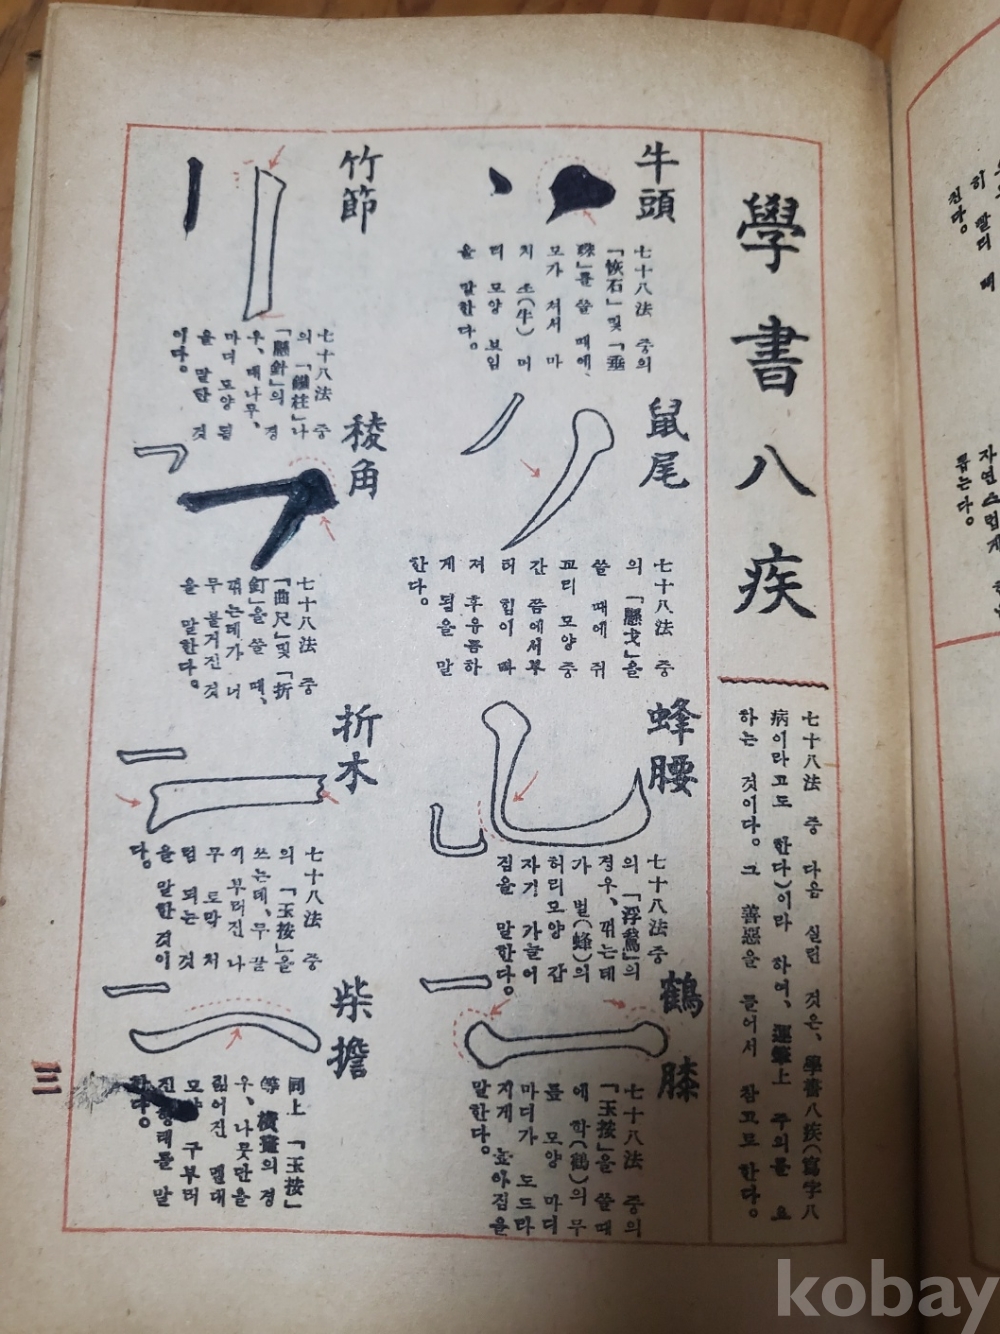 學書八疾
七十八法 중 다음 실린 것은, 學書八疾(寫字八
病이라고도 한다)이라 하여, 運筆上 주의를 요
하는 것이다. 그 善惡을 들어서 참고로 한다.
牛頭
七十八法 중의
「恢石」및「垂
珠」를 쓸 때에,
모가 져서 마
치 소(牛) 머
리 모양 보임
을 말한다.
鼠尾
七十八法 중
의 「懸戈」을
쓸 때에 쥐
꼬리 모양 중
간 쯤에서부
터 힘이 빠
져 후유름하
게 됨을 말
한다.
蜂腰
七十八法 중
의 「浮鵞」의
경우, 꺾는데
가 벌(蜂)의
허리모양 갑
자기 가늘어
짐을 말한다.
鶴膝
七十八法 중의
「玉按」을 쓸때
에 학(鶴)의 무
릎 모양 마디
마디가 도드라
지게 높아짐을
말한다.
竹節
七十八法 중
의 「鐵柱」나
「懸針」의 경
우, 대나무,
마디 모양 됨
을 말한 것
이다.
稜角
七十八法 중
「曲尺」및「折
釘」을 쓸 때,
꺾는데가 너
무 불거진 것
을 말한다.
折木
七十八法 중
의 「玉按」을
쓰는데, 무 잘
기 부러진 나
무 토막 처
럼 되는 것
을 말한 것이
다.
柴擔
同上 「玉按」
等 橫畫의 경
우, 나뭇만을
짊어진 멜대
모양 구부러
진 형태를 말
한다.
三
히 빨리 떼
진다.
자연스럽게
뽑는다.
kobay